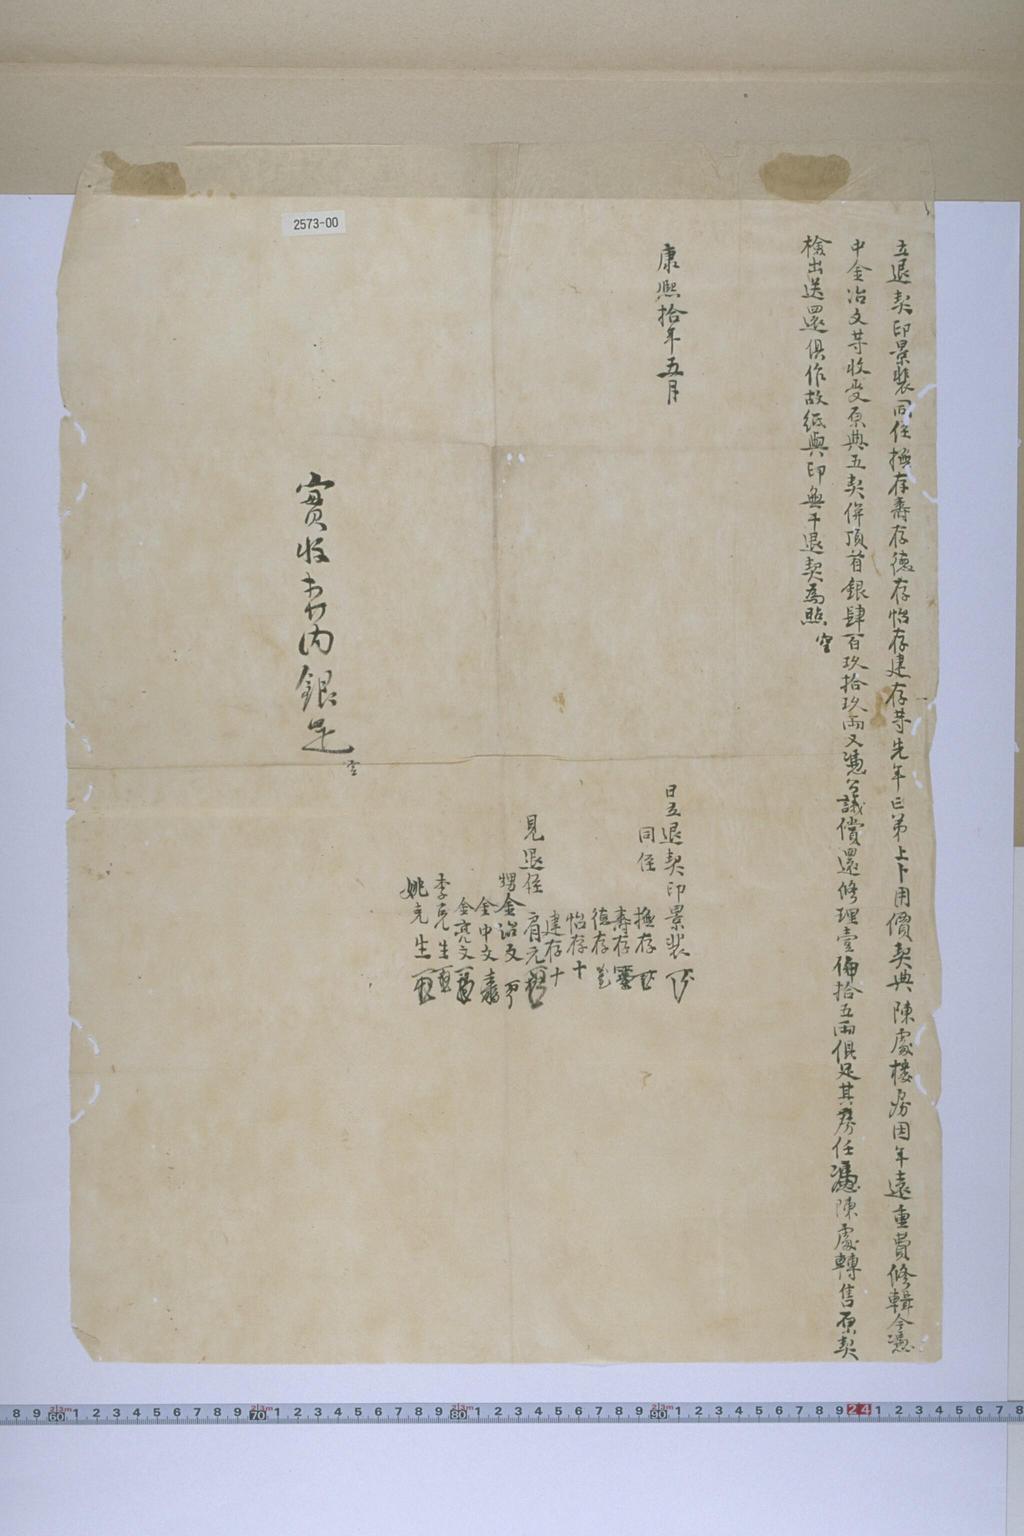 立退契印景裴同侄極存壽存德存怡存建存等先年曰弟上卜用價契典陳處樓房因年遠重費修輯今憑
中金治文等收受原典五契併頂首銀肆百玖拾玖兩又憑公議償還修理壹佰拾五兩俱足其房任憑陳處轉售原契
檢出送還俱作故紙與印無干退契為照
康熙拾年五月
日立退契印景裴
同侄極存
壽存
德存
怡存十
建存十
見退侄肩元
甥金治文
金中文
金亮文
李克生
姚克生
實收契內銀足
2573-00